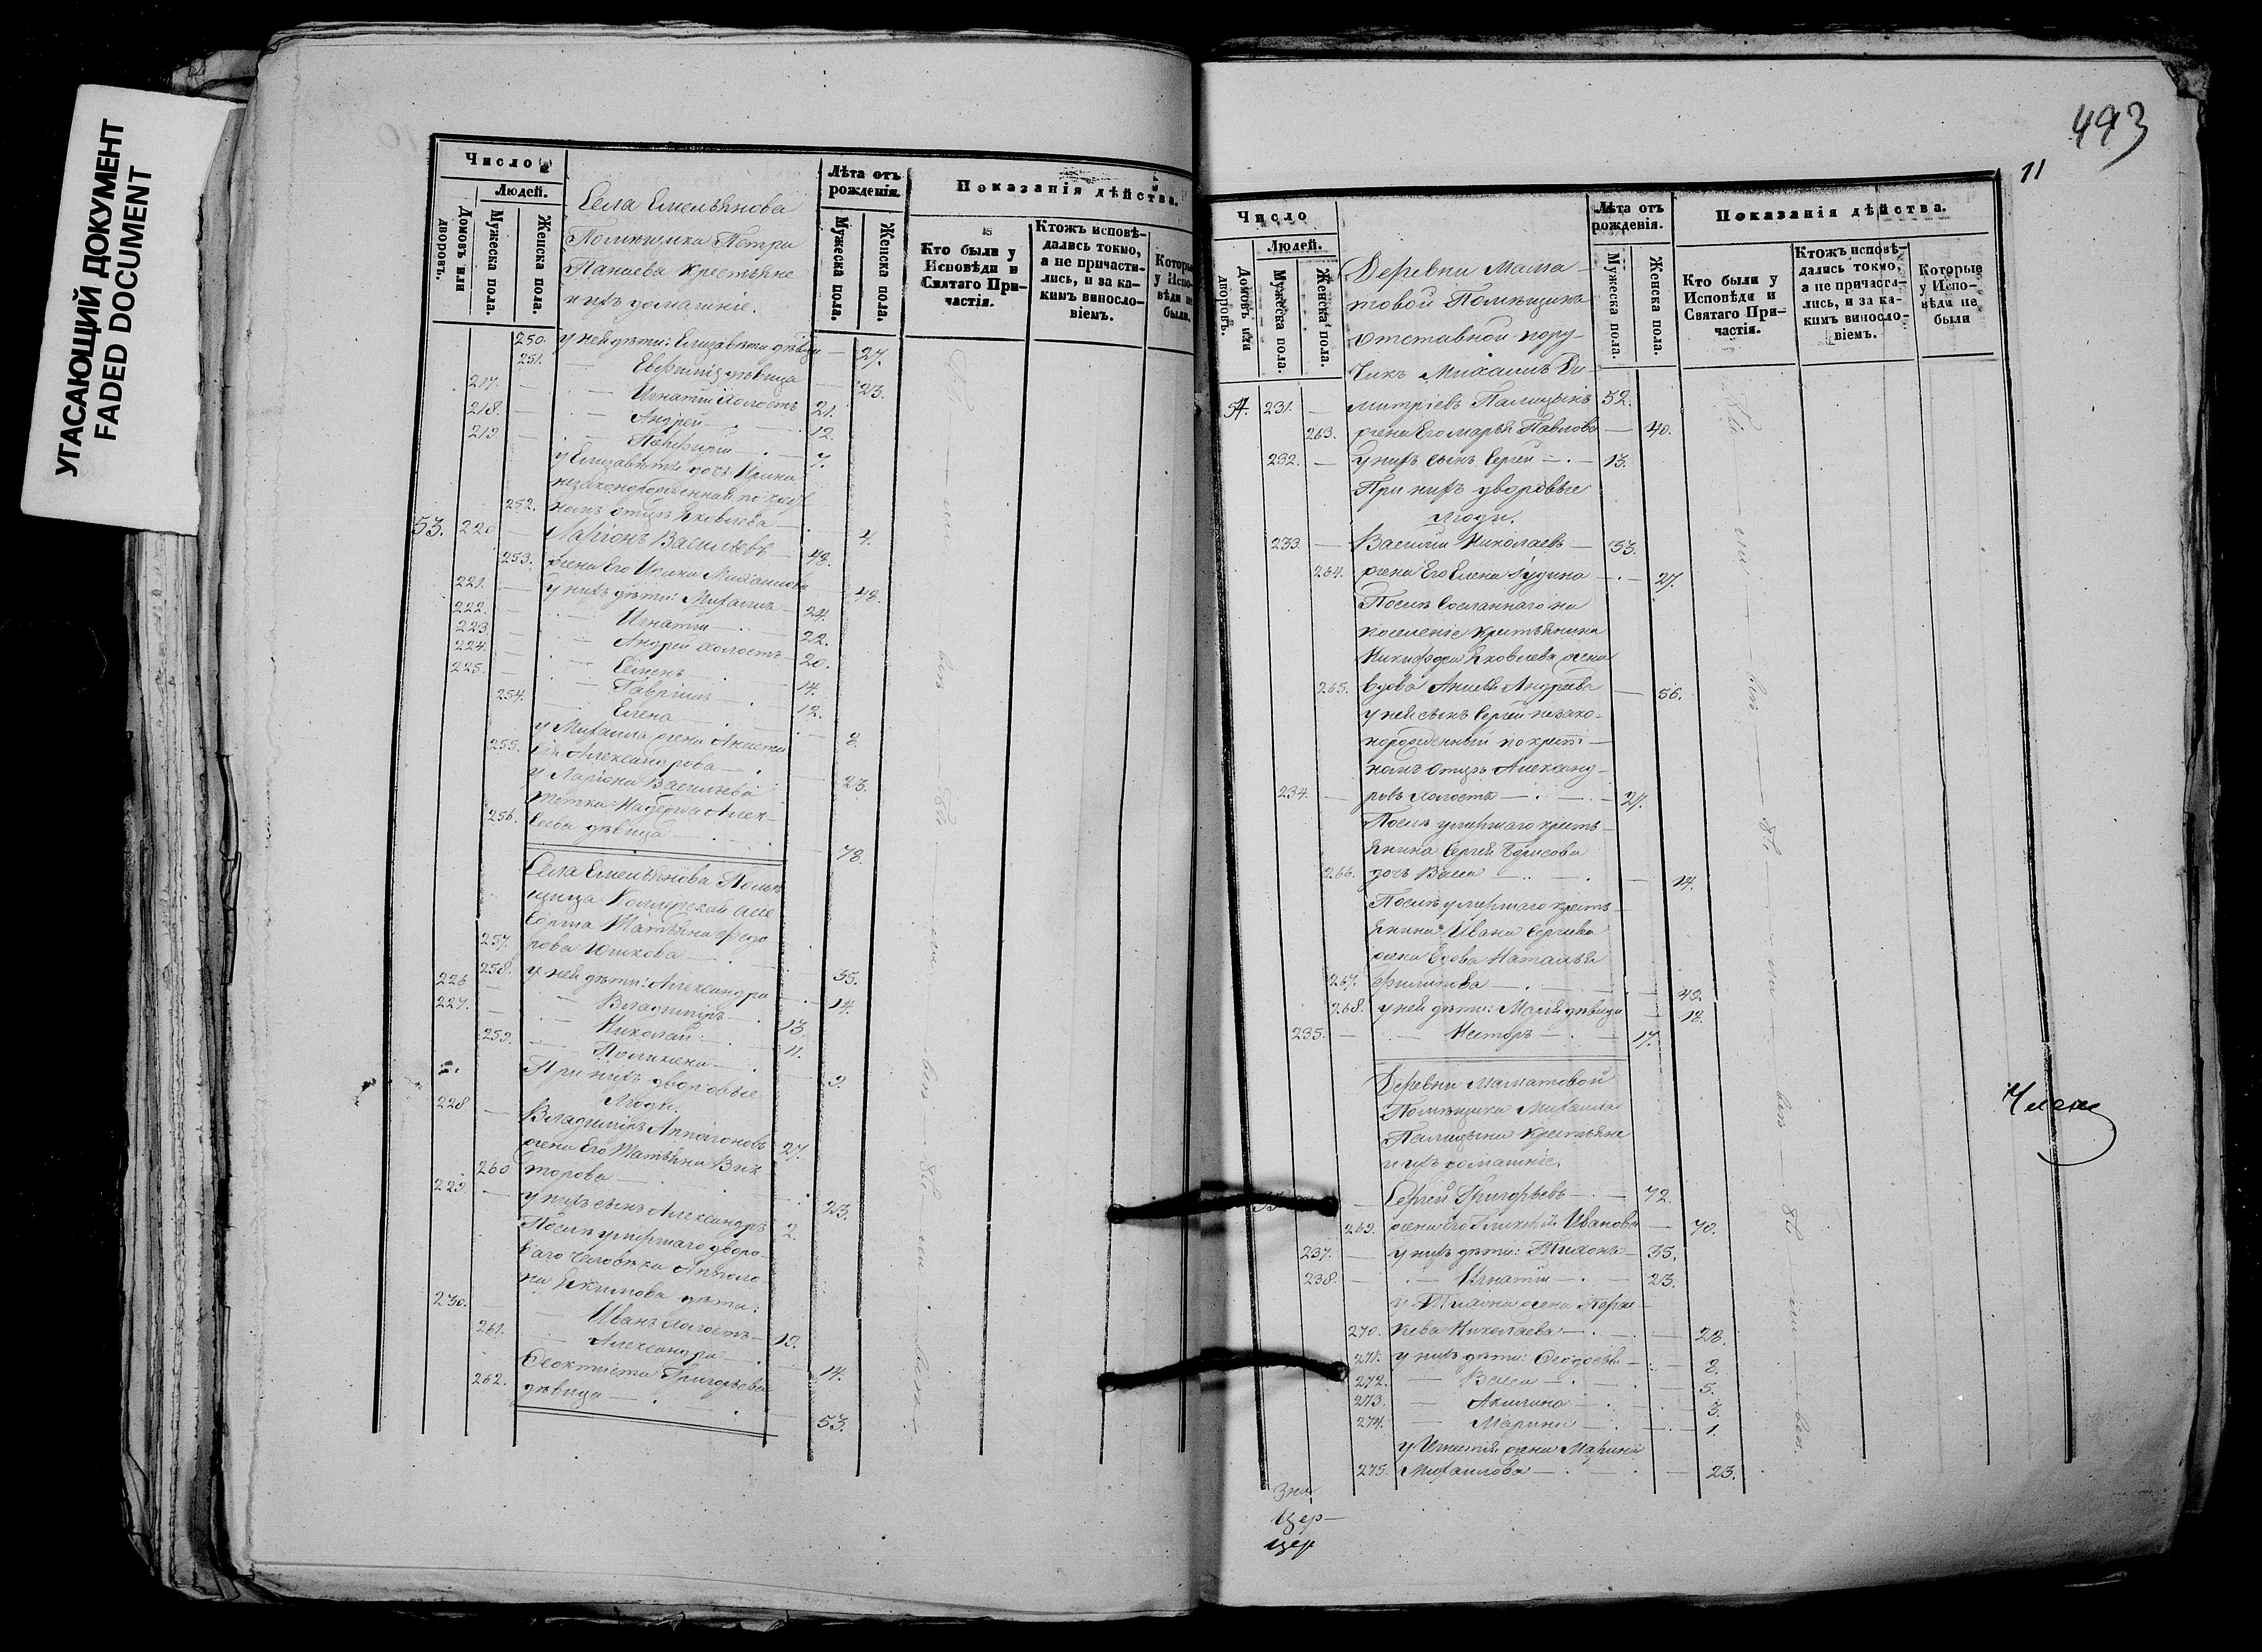 УГАСАЮЩИЙ ДОКУМЕНТ
FADED DOCUMENT
Число
Людей.
Домовъ или дворовъ.
Мужеска пола.
Женска пола.
Села Емельянова
Помѣщика Петра
Панаева крестьяне
и ихъ домашніе.
Лѣта отъ рожденія.
Мужеска пола.
Женска пола.
Показанія дѣйства.
Кто были у Исповѣди и Святаго Причастія.
Ктожъ исповѣдались токмо, а не причастились, и за какимъ винословіемъ.
Которые у Исповѣди не были.
250. у ней дѣти: Елизавета дѣвица — 27.
251. — дѣвица — 23.
217. — Игнатій холостъ 21.
218. — Андрей — 12.
219. — Порфирій — 7.
у Елизаветы дочь Ирина
незаконорожденная по крест
252. номъ отцѣ Яковлева — 4.
53. 220 — Ларіонъ Васильевъ — 48.
253. жена Его Михаилова 48.
221. — у нихъ дѣти: Михаилъ — 24.
222. — Игнатій — 22.
223. — Андрей холостъ — 20.
224. — Семенъ — 14.
225. — Гавріилъ — 12.
254. — Елена — 8.
у Михаила жена Анаста
255. сія Александрова — 23.
у Ларіона Васильева
тетка Надежда Алек
256. сѣева дѣвица — 78.
Села Емельянова Помѣ
щица Коллежская Ассе
сорша Татьяна Федо
257. рова Юшкова — 35.
258. у ней дѣти: Александра — 14.
226 — Владиміръ — 13.
227. — Николай — 11.
259. — Поликсена — 9.
При нихъ дворовые
Люди.
228 — Владиміръ Апполоновъ 27.
жена Его Татьяна Вик
260 торова — 23.
229 — у нихъ сынъ Александръ 2.
Послѣ умершаго дворо
ваго человѣка Апполо
на Якимова дѣти:
230. — Иванъ холостъ — 19.
261. — Александра — 14.
Феоктиста Григорьева
262. дѣвица — 53.
493
11
Число
Людей.
Домовъ или дворовъ.
Мужеска пола.
Женска пола.
Деревни Мама-
товой Помѣщикъ
отставной пору-
чикъ Михаилъ Ди-
Лѣта отъ рожденія.
Мужеска пола.
Женска пола.
Показанія дѣйства.
Кто были у Исповѣди и Святаго Причастія.
Ктожъ исповѣдались токмо, а не причастились, и за какимъ винословіемъ.
Которые у Исповѣди не были
54. 231. — митріевъ Палицынъ 52.
263. жена Его Марья Павлова — 40.
232. — у нихъ сынъ Сергей — 13.
При нихъ дворовые
Люди.
233. — Василій Николаевъ — 33.
264. жена Его Елена Іудина — 27.
Послѣ Сосланнаго на
поселеніе крестьянина
Никифора Яковлева жена
265. вдова Анисья Андреева — 56.
у ней сынъ Сергей незако-
норожденный по крест-
номъ отцѣ Александ-
234. — ровъ холостъ — 27.
Послѣ умершаго кресть-
янина Сергея Борисова
266. дочь Васса — 14.
Послѣ умершаго кресть-
янина Ивана Сергѣева
жена вдова Наталья
267. Филипова — 49.
268. у ней дѣти: Марья дѣвица — 18.
235. — Несторъ — 17.
Деревни Маматовой
Помѣщика Михаила
Палицына Крестьяне
и ихъ домашніе.
— Сергей Григорьевъ — 72.
269. жена Его Гликерья Иванова — 70.
237. — у нихъ дѣти: Тихонъ — 35.
238. — Игнатій — 23.
у Тихона жена Парас-
270. кева Николаева — 28.
271. у нихъ дѣти: Федосья — 8.
272. — Васса — 5.
273. — Акилина — 3.
274. — Марина — 1.
у Игнатія жена Марина
275. Михаилова — 23.
Член
Зна
Цер-
цер